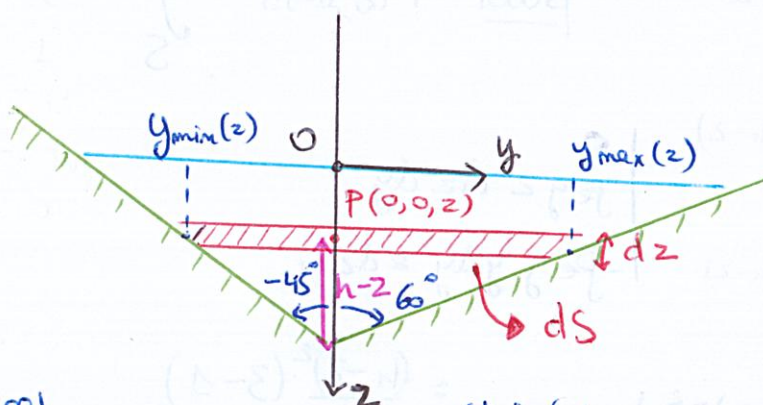 ymin(z) O y ymax(z)
P(0,0,z)
dz
-45° h-z 60°
dS
z